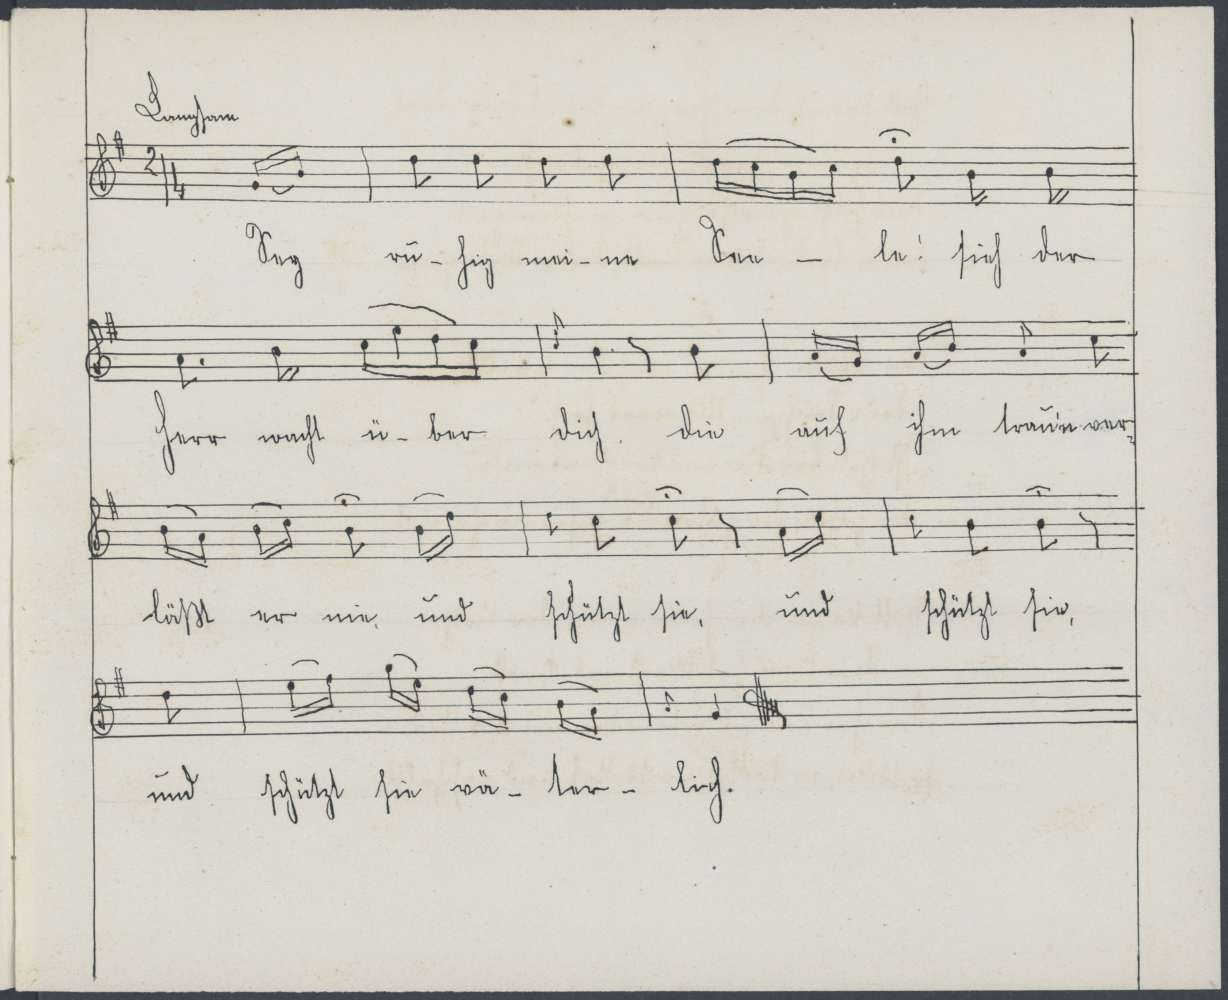 Langsam
2/4
Sey rŭ-hig mei-ne See - le! sieh der
Herr wacht ü-ber dich. die aŭf ihm traŭ'n ver-
läßt er nie, ŭnd schützt sie, ŭnd schützt sie,
ŭnd schützt sie vä-ter-lich.